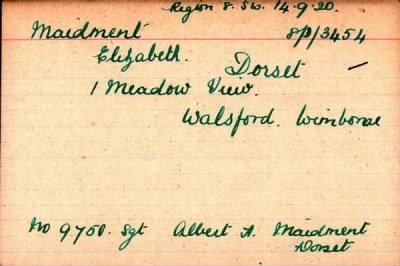 Region 8. S.W. 14.9.20.
Maidment 8P/3454
Elizabeth.
Dorset
1 Meadow View.
Walsford. Wimborne
No 9750. Sgt Albert A. Maidment
Dorset